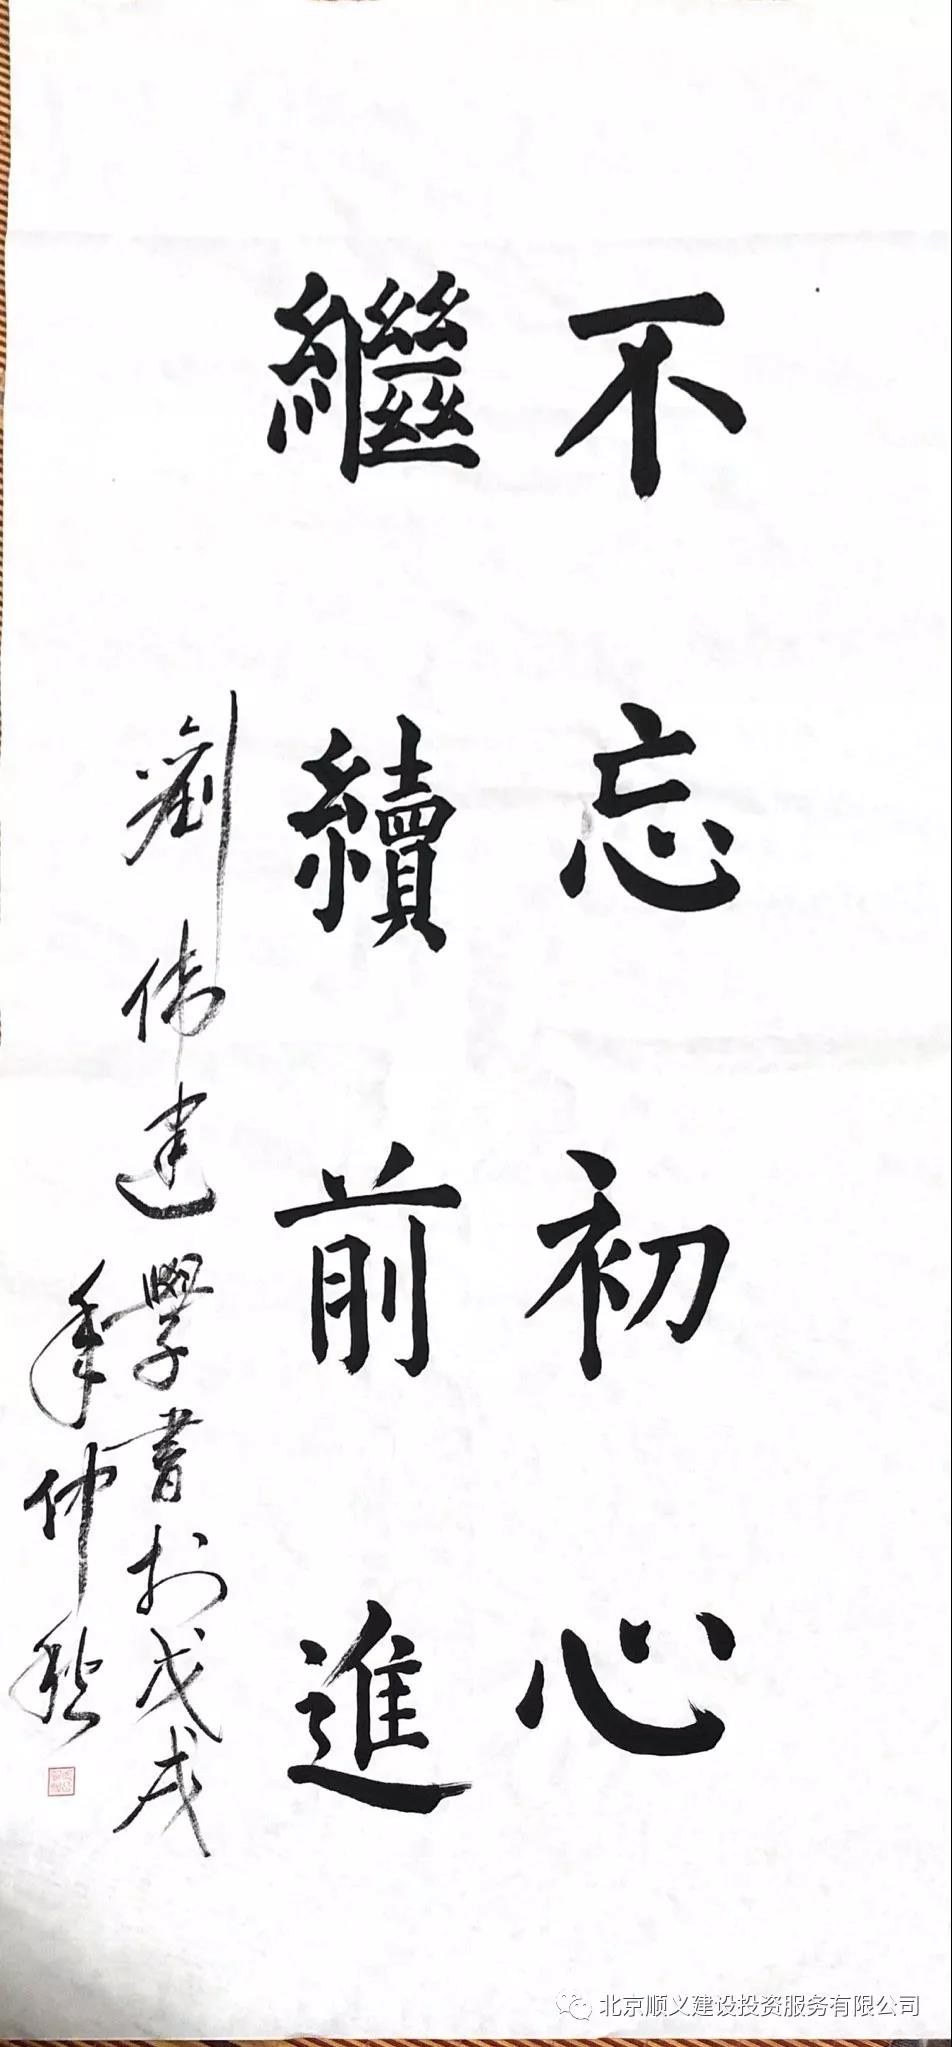 不忘初心
繼續前進
劉伟建學書於戊戌
年仲秋
北京顺义建设投资服务有限公司